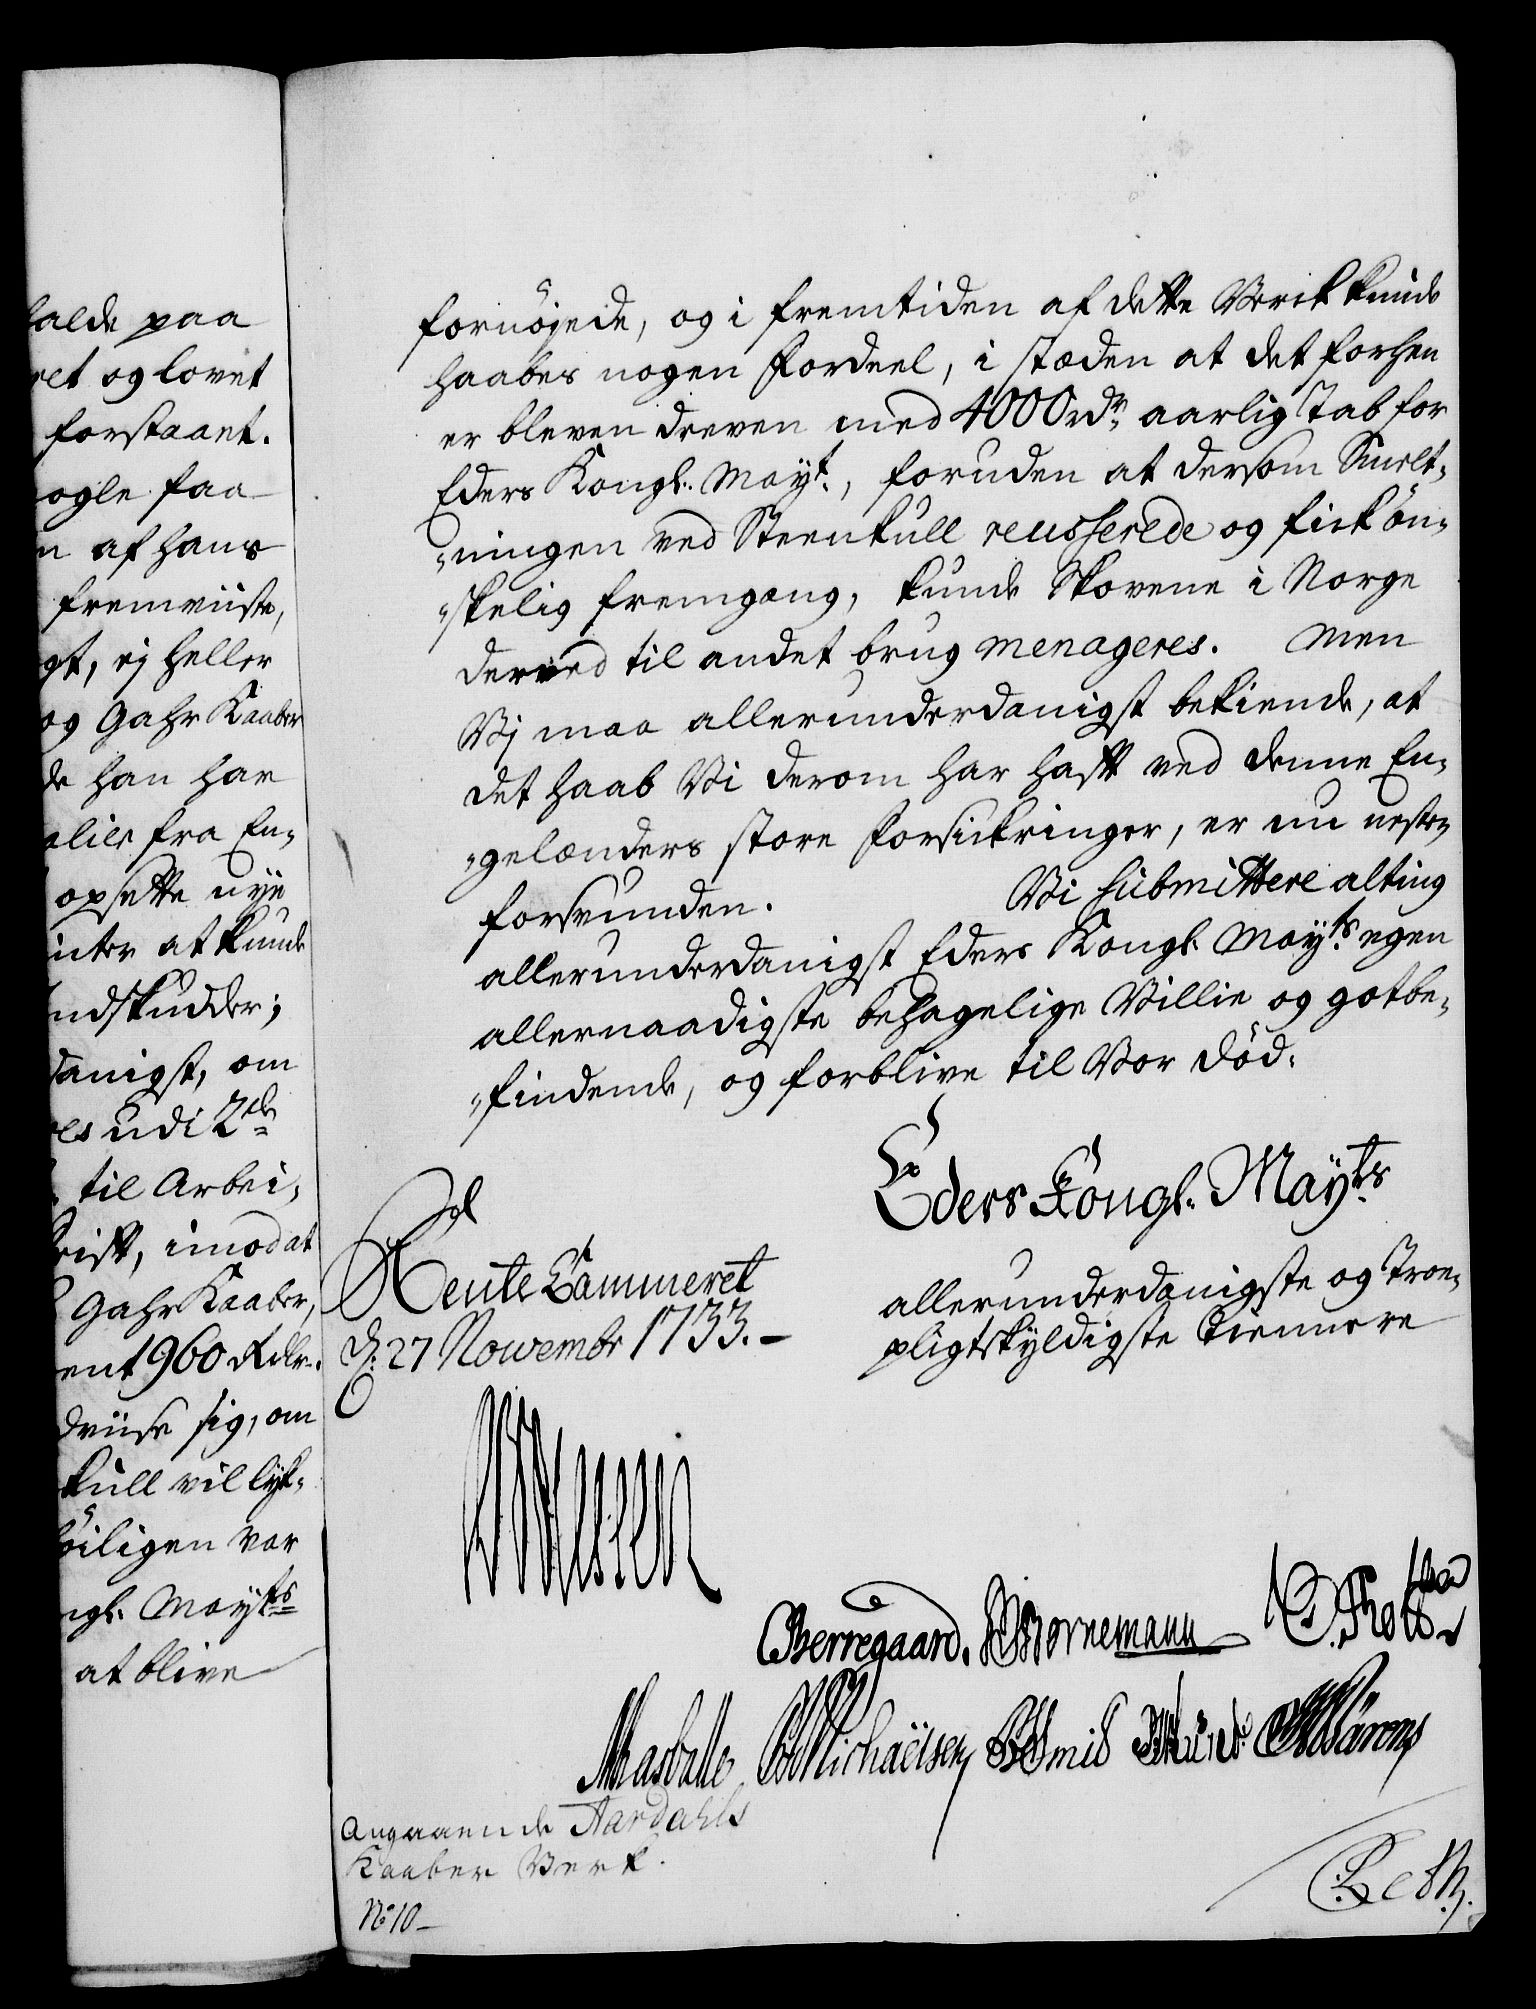 alde paa
ret og lovet
forstaaet.
ogle faa
n af hans
fremviiste,
gt, ej heller
og Gahr Kaaber
de han har
alier fra En-
opsette nye
inter at kunde
ndskudder;
danigst, om
es udi 2de
til Arbei-
rift, imod at
Gahr Kaaber,
ent 1960 Rdlr.
dviise sig, om
kull vil lyk-
öiligen var
ngl. Mayts
at blive
fornöyede, og i fremtiden af dette Verck kunde
haabes nogen Fordeel, i stæden at det forhen
er bleven dreven med 4000 rdr. aarlig Tab for
Eders Kongl. Mayt., foruden at dersom Smelt-
-ningen ved Steenkull reusserede og fick ön-
-skelig fremgang, kunde Skovene i Norge
derved til andet brug menageres. Men
Vj maa allerunderdanigst bekiende, at
det haab Vi derom har hafft ved denne En-
-gelænders store Forsickringer, er nu nesten
forsvunden. Vi submittere alting
allerunderdanigst Eders Kongl. Mayts egen
allernaadigste behagelige Villie og gotbe-
-findende, og forblive til Vor död.
Eders Kongl. Mayts
Rente Cammeret
d. 27 Novembr 1733.
allerunderdanigste og Troe-
pligtskyldigste Tiennere
Berregaard. Bornemann Thott
Michaëlsen Smid
Angaaende Aardahls
Kaaber Verk.
No 10